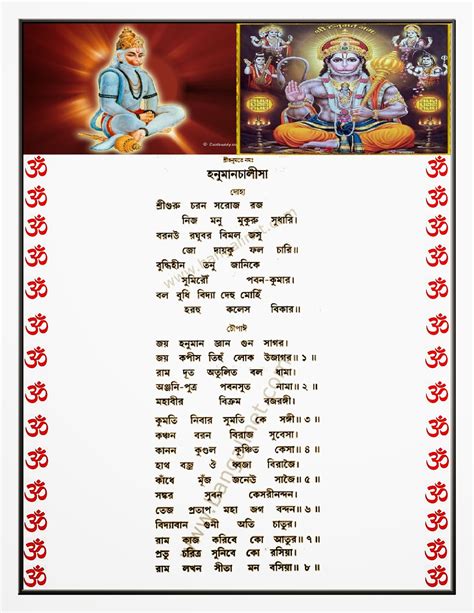 শ্রীহনুমতে নমঃ
হনুমানচালীসা
দোহা
শ্রীগুরু চরন সরোজ রজ
নিজ মনু মুকুরু সুধারি।
বরনউ রঘুবর বিমল জসু
জো দায়কু ফল চারি॥
বুদ্ধিহীন তনু জানিকে
সুমিরৌঁ পবন-কুমার।
বল বুধি বিদ্যা দেহু মোহিঁ
হরহু কলেস বিকার॥
চৌপাঈ
জয় হনুমান জ্ঞান গুন সাগর।
জয় কপীস তিহুঁ লোক উজাগর॥ ১ ॥
রাম দূত অতুলিত বল ধামা।
অঞ্জনি-পুত্র পবনসুত নামা॥ ২ ॥
মহাবীর বিক্রম বজরঙ্গী।
কুমতি নিবার সুমতি কে সঙ্গী॥ ৩ ॥
কঞ্চন বরন বিরাজ সুবেসা।
কানন কুণ্ডল কুঞ্চিত কেসা॥ ৪ ॥
হাথ বজ্র ঔ ধ্বজা বিরাজৈ।
কাঁধে মূঁজ জনেউ সাজৈ॥ ৫ ॥
সঙ্কর সুবন কেসরীনন্দন।
তেজ প্রতাপ মহা জগ বন্দন॥ ৬ ॥
বিদ্যাবান গুনী অতি চাতুর।
রাম কাজ করিবে কো আতুর॥ ৭ ॥
প্রভু চরিত্র সুনিবে কো রসিয়া।
রাম লখন সীতা মন বসিয়া॥ ৮ ॥